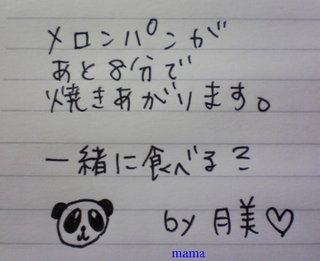 メロンパンが
あと8分で
焼きあがります。
一緒に食べる?
by 月美♡
mama